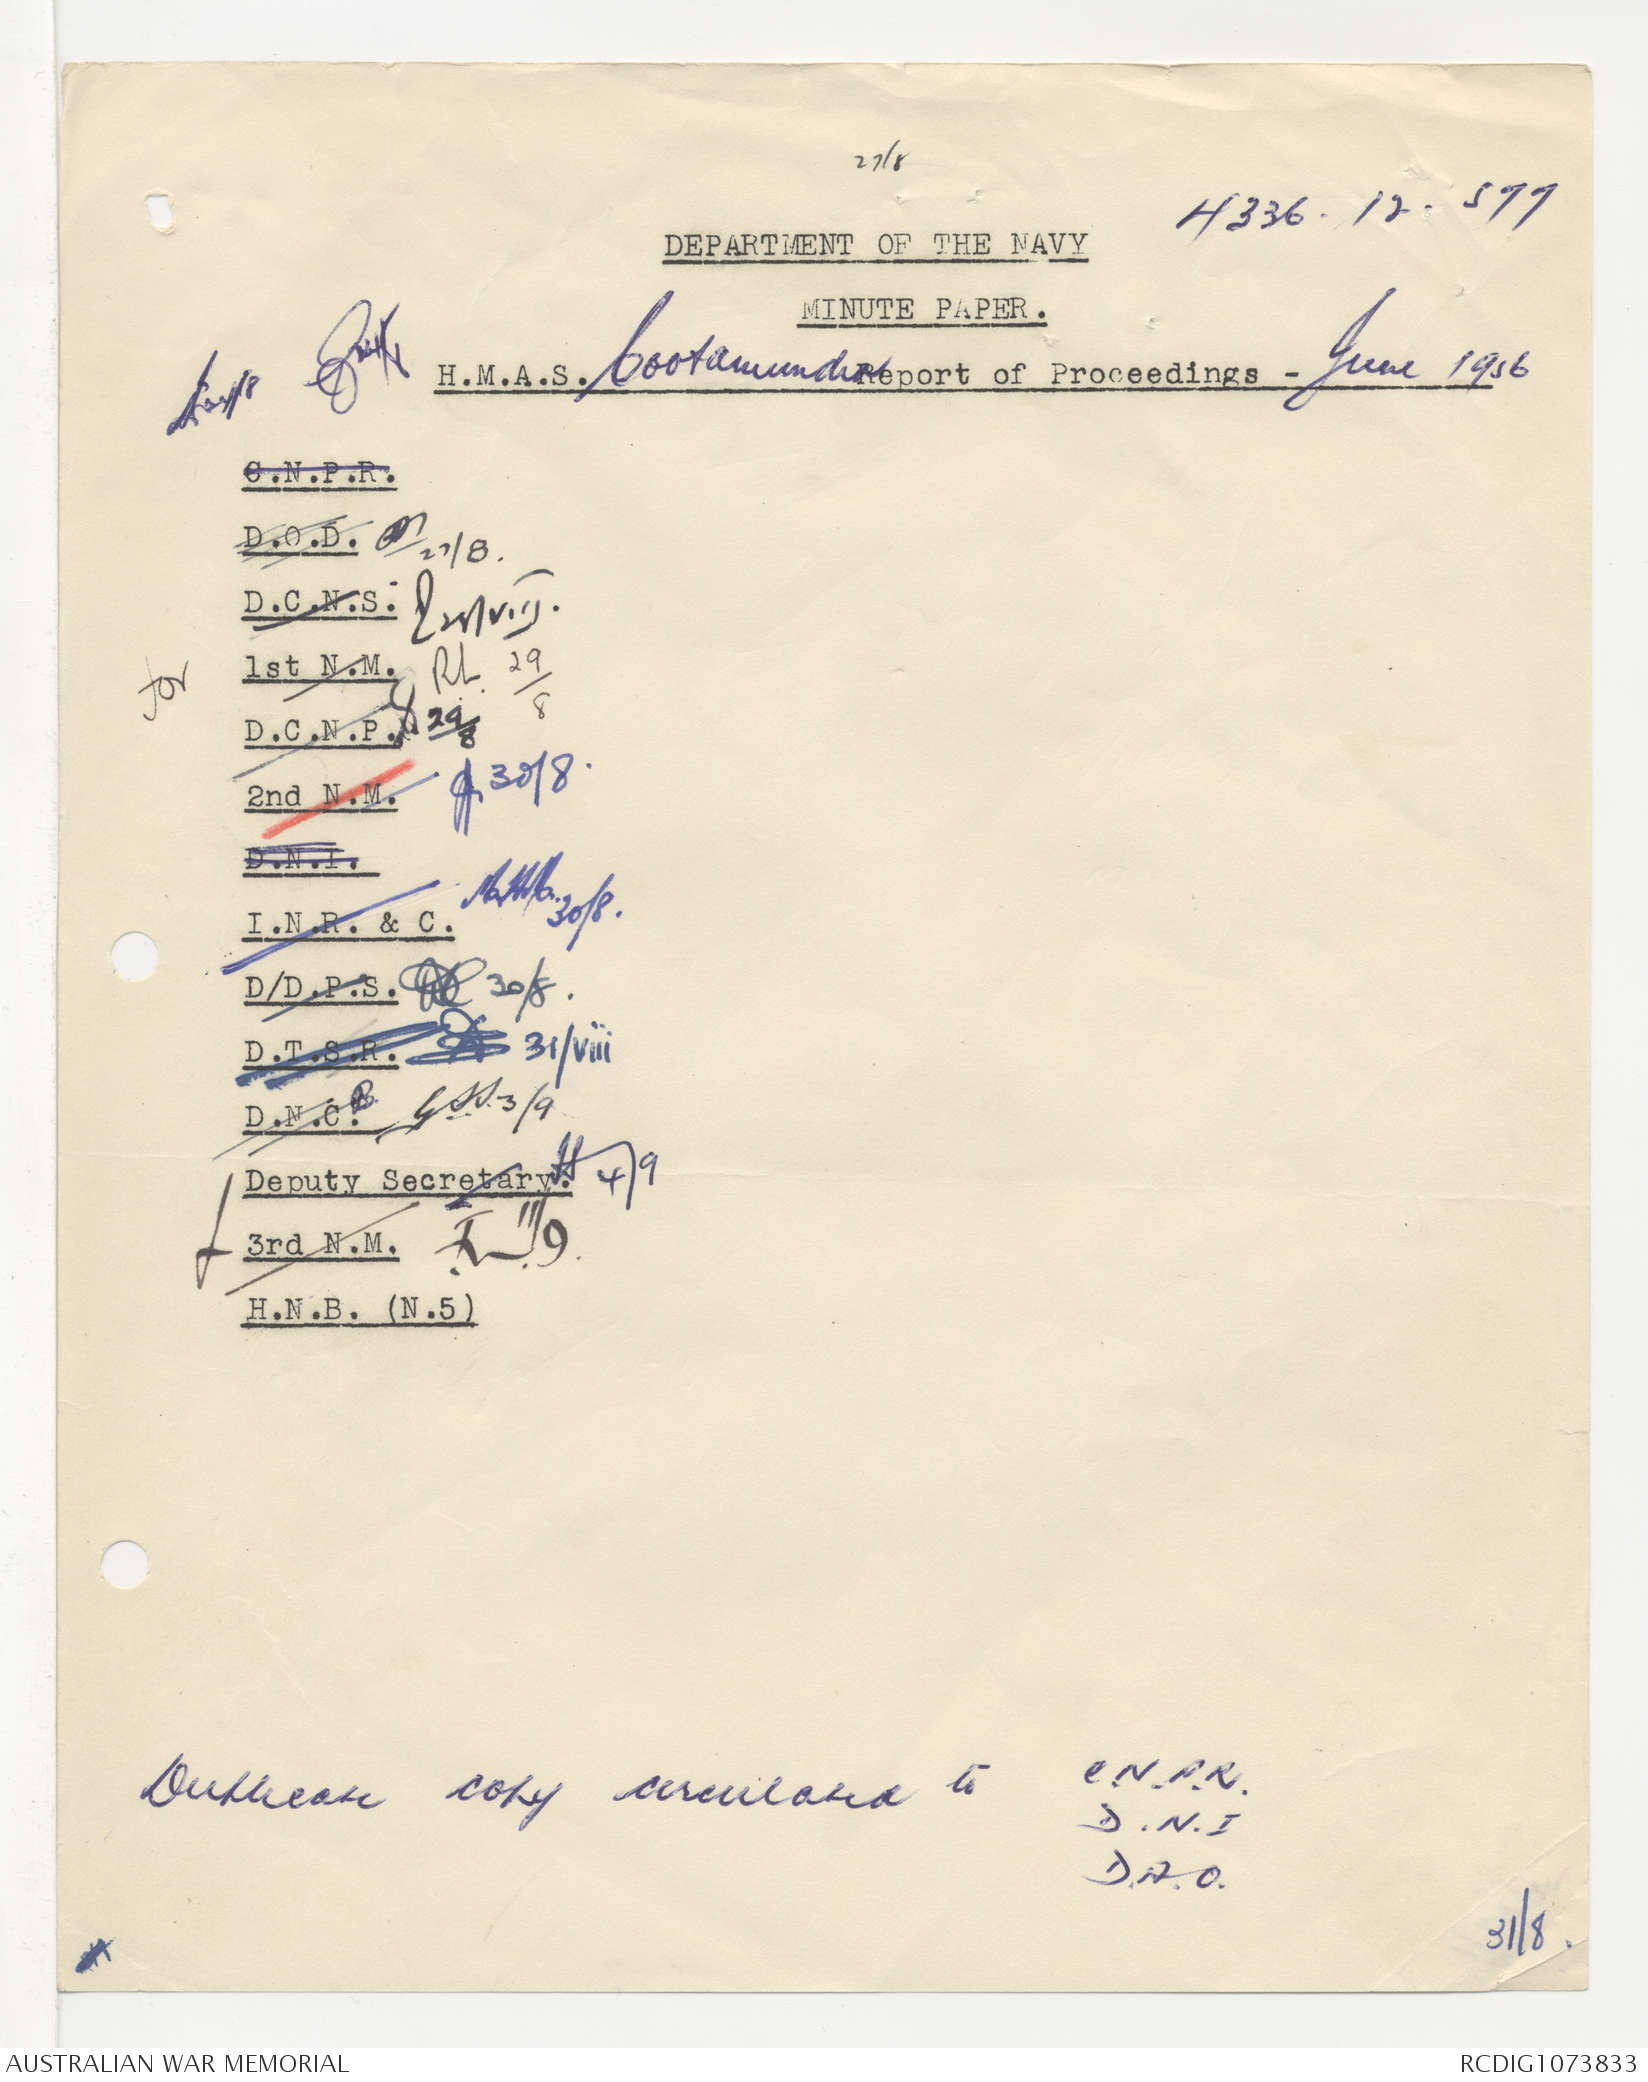 27/8
4336.12.577
DEPARTMENT OF THE NAVY
MINUTE PAPER.
H.M.A.S. Cootamundra Report of Proceedings - June 1956
C.N.P.R.
D.O.D. 27/8.
D.C.N.S.
1st N.M. RL. 29/8
D.C.N.P. 29/8
2nd N.M. 30/8.
D.N.I.
I.N.R. & C. 30/8.
D/D.P.S. 30/8.
D.T.S.R. 31/viii
D.N.C. 3/9
Deputy Secretary. 4/9
3rd N.M.
H.N.B. (N.5)
Duplicate copy circulated to C.N.P.R.
D.N.I
31/8.
AUSTRALIAN WAR MEMORIAL
RCDIG1073833